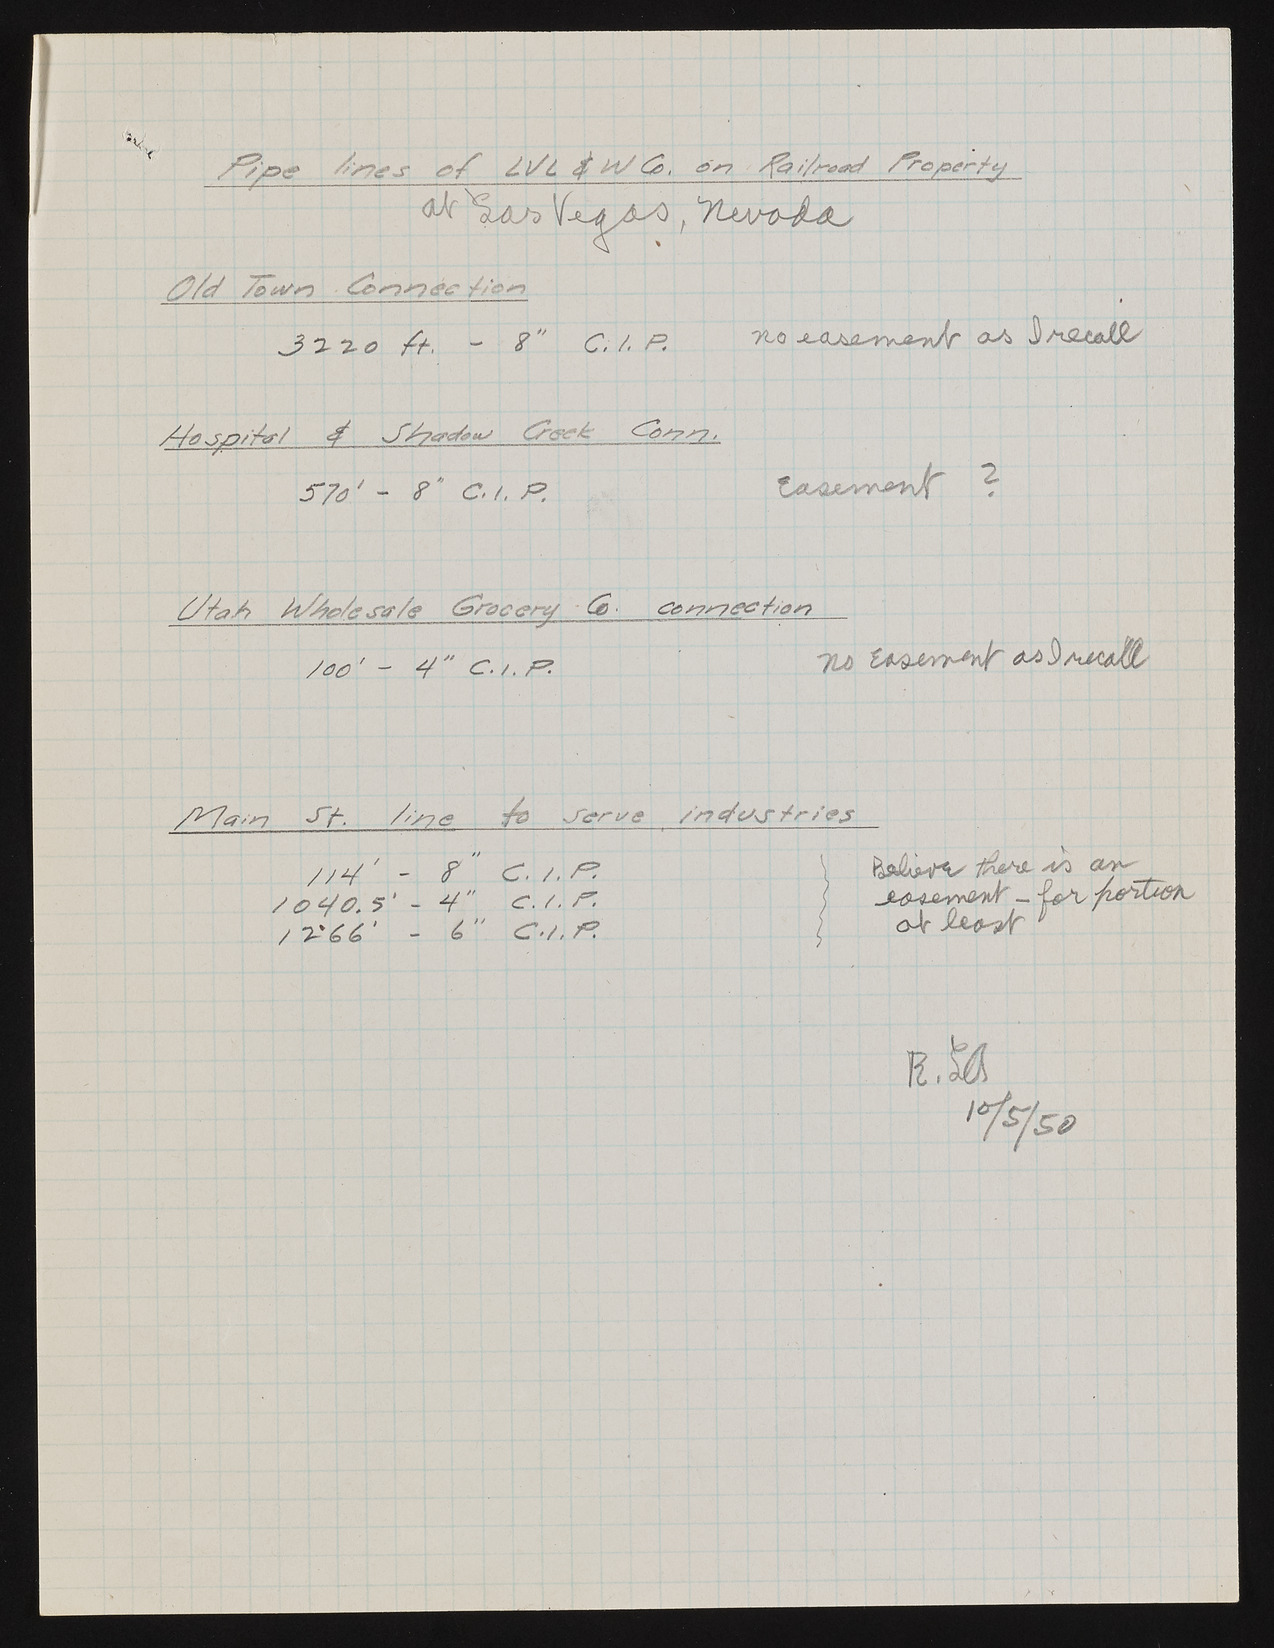 Pipe lines of LVL & W Co. on Railroad Property
at Las Vegas, Nevada
Old Town Connection
3220 ft. - 8" C.I.P. no easement as I recall
Hospital & Shadow Creek Conn.
570' - 8" C.I.P. Easement ?
Utah Wholesale Grocery Co. connection
100' - 4" C.I.P. no Easement as I recall
Main St. line to serve industries
114' - 8" C.I.P. Believe there is an
1040.5' - 4" C.I.P. easement - for portion
1266' - 6" C.I.P. at least
10/5/50